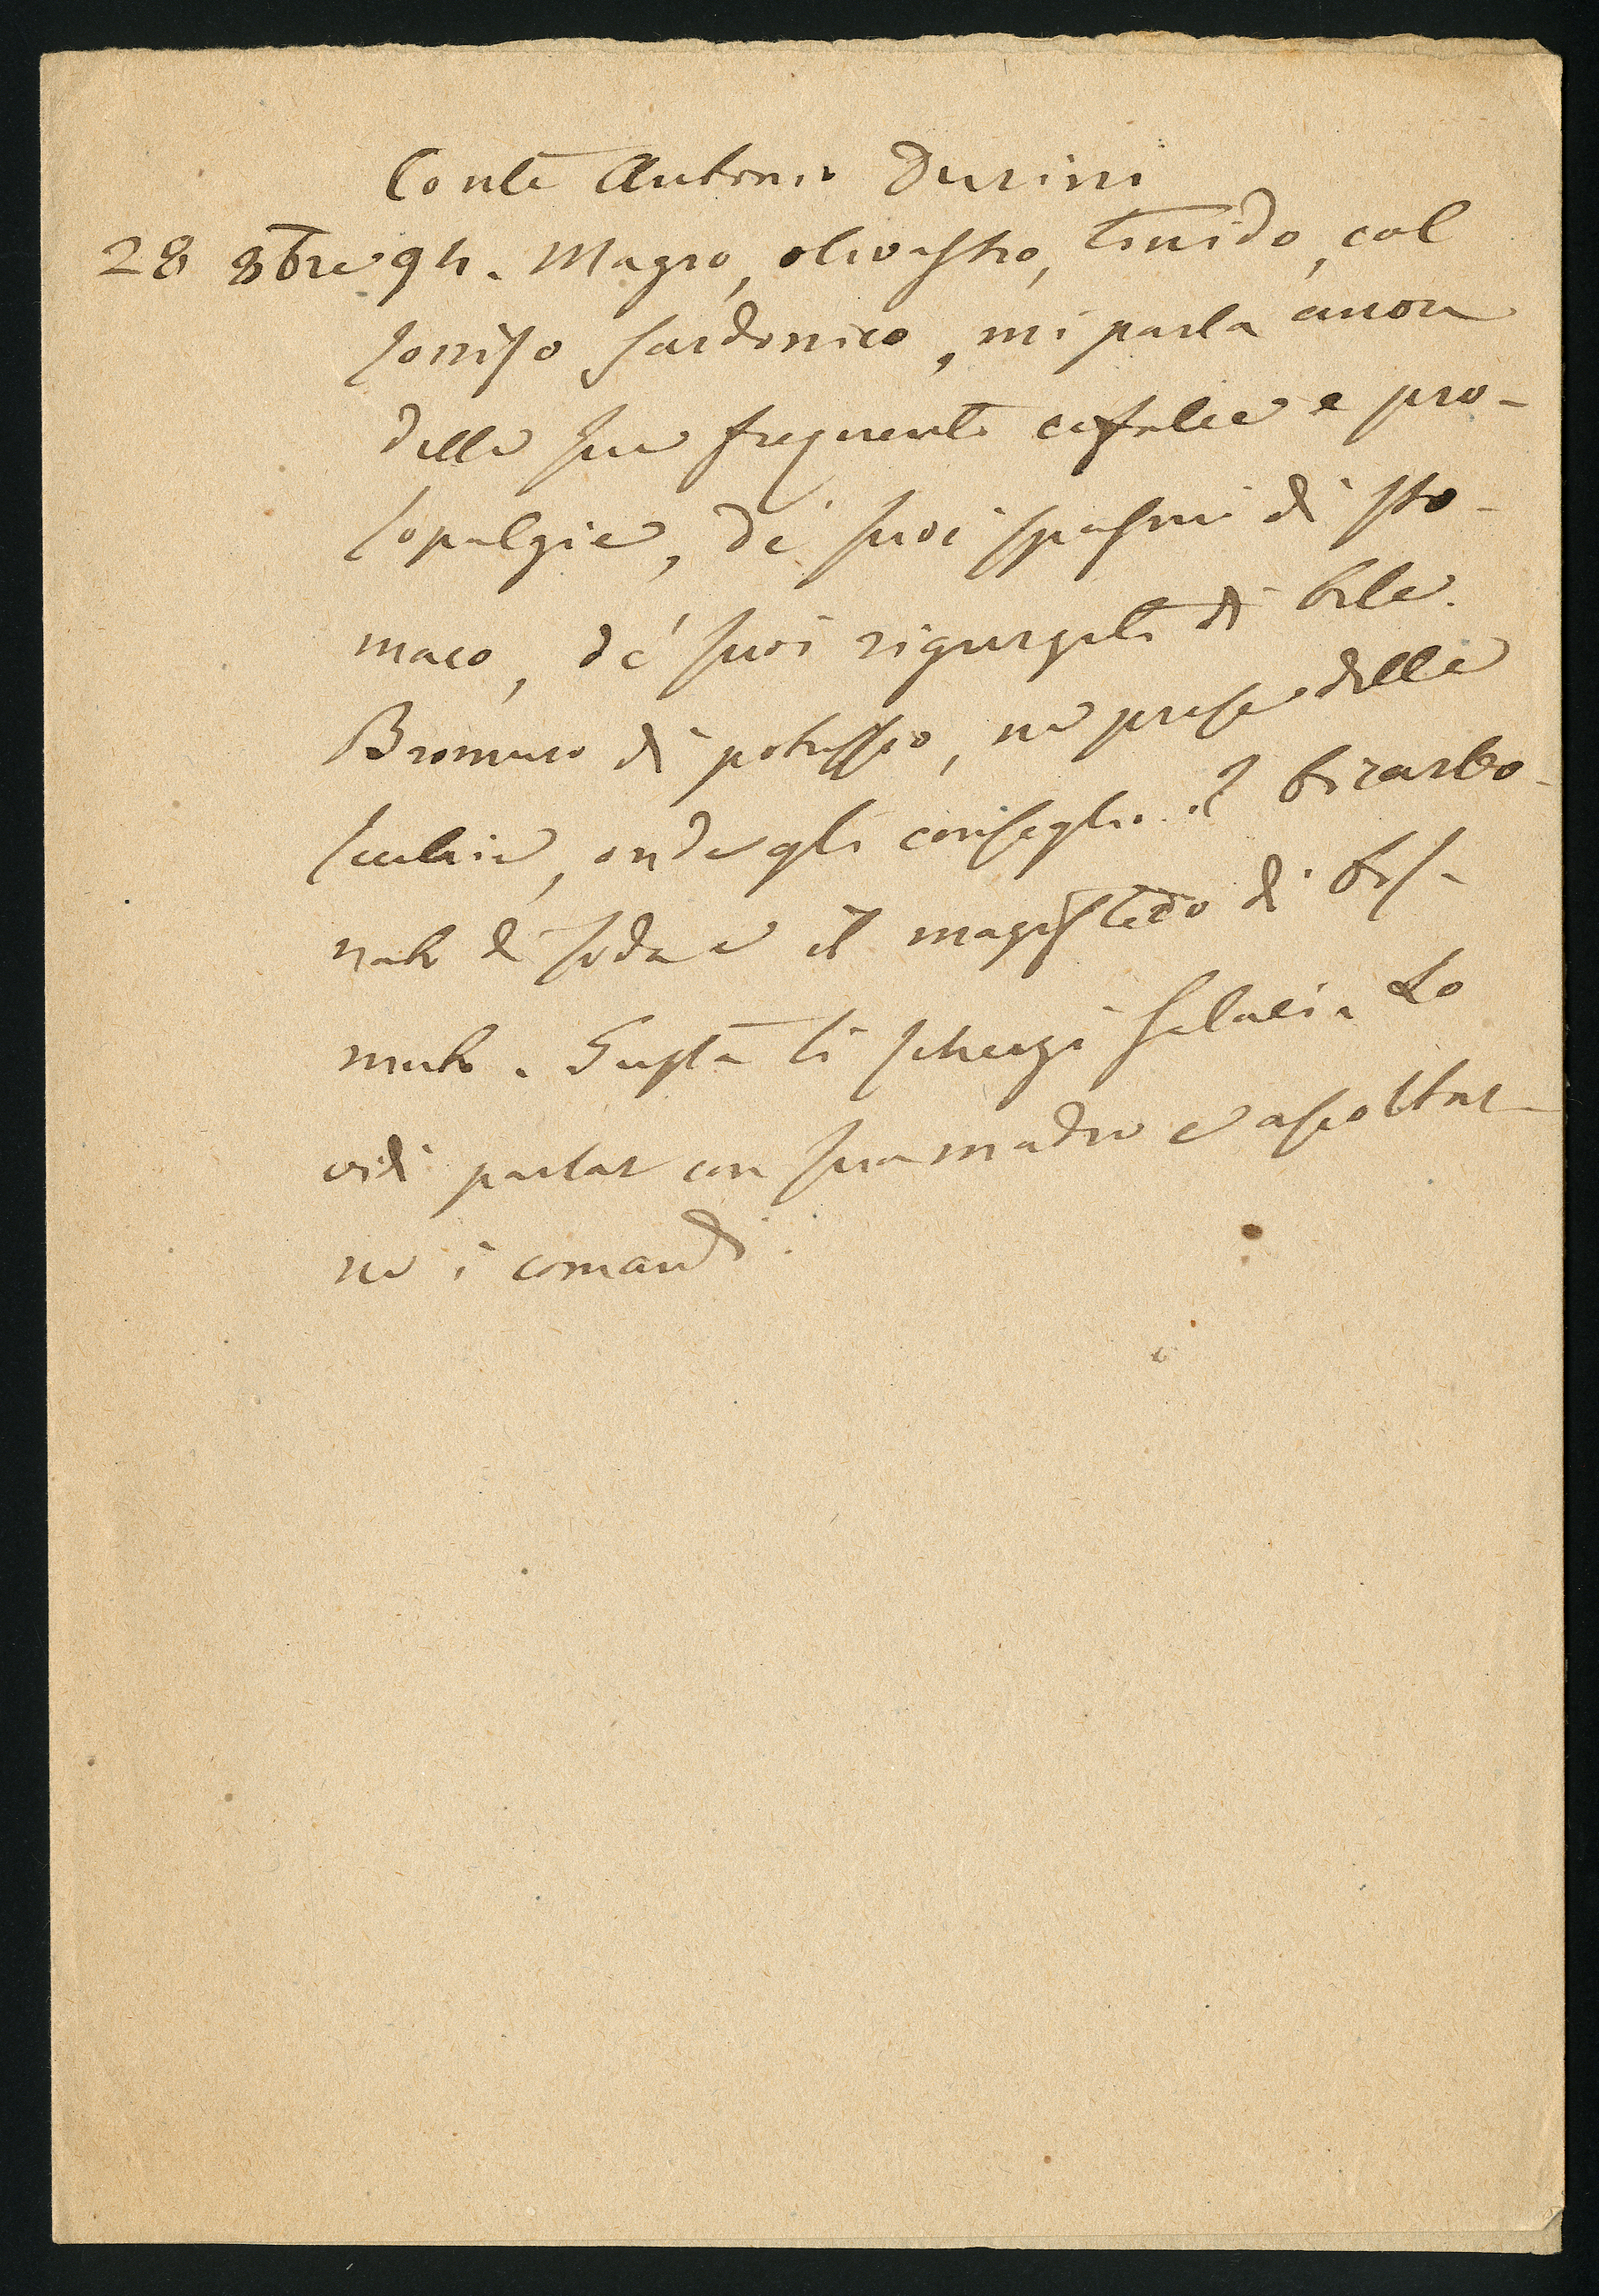 Conte Antonio Durini
28 8bre 94. Magro, olivastro, timido, col
sorriso sardonico, mi parla ancora
delle sue frequenti cefalee e pro-
sopalgie, de' suoi spasmi di sto-
maco, de' suoi rigurgiti di bile.
Bromuro di potassio, ne prese delle
, onde gli consiglio il bicarbo-
nato di soda e il magistero di bis-
muto. Gusta li scherzi salaci. Lo
vidi parlar con sua madre e ascoltar-
ne i comandi.